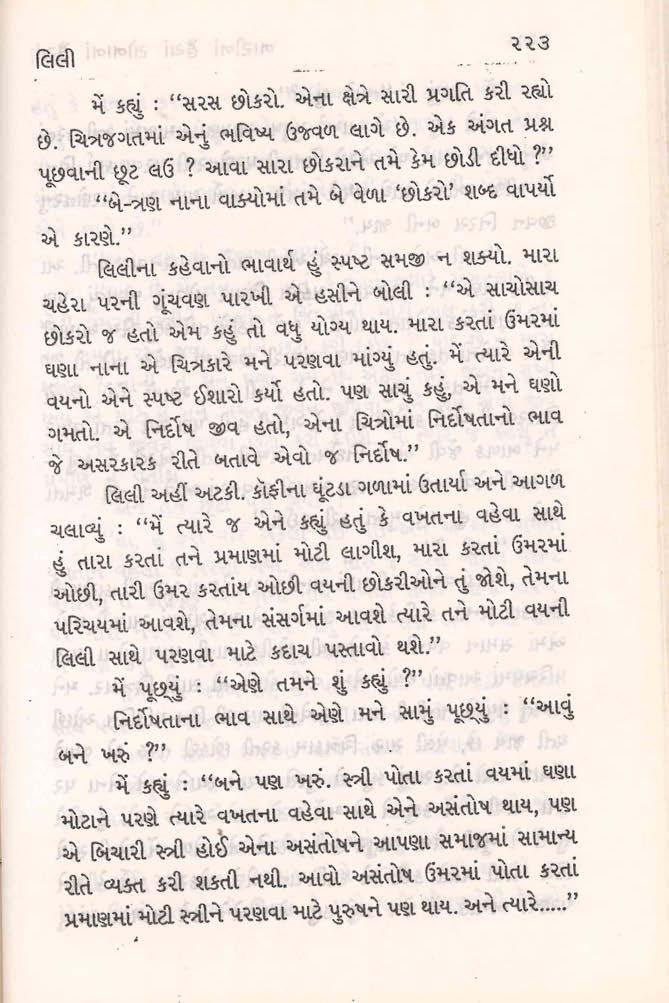 લિલી
૨૨૩
મેં કહ્યું : “સરસ છોકરો. એના ક્ષેત્રે સારી પ્રગતિ કરી રહ્યો
છે. ચિત્રજગતમાં એનું ભવિષ્ય ઉજવળ લાગે છે. એક અંગત પ્રશ્ન
પૂછવાની છૂટ લઉં ? આવા સારા છોકરાને તમે કેમ છોડી દીધો ?”
“બે-ત્રણ નાના વાક્યોમાં તમે બે વેળા ‘છોકરો’ શબ્દ વાપર્યો
એ કારણે.”
લિલીના કહેવાનો ભાવાર્થ હું સ્પષ્ટ સમજી ન શક્યો. મારા
ચહેરા પરની ગૂંચવણ પારખી એ હસીને બોલી : “એ સાચોસાચ
છોકરો જ હતો એમ કહું તો વધુ યોગ્ય થાય. મારા કરતાં ઉમરમાં
ઘણા નાના એ ચિત્રકારે મને પરણવા માંગ્યું હતું. મેં ત્યારે એની
વયનો એને સ્પષ્ટ ઈશારો કર્યો હતો. પણ સાચું કહું, એ મને ઘણો
ગમતો. એ નિર્દોષ જીવ હતો, એના ચિત્રોમાં નિર્દોષતાનો ભાવ
જે અસરકારક રીતે બતાવે એવો જ નિર્દોષ.”
લિલી અહીં અટકી. કૉફીના ઘૂંટડા ગળામાં ઉતાર્યા અને આગળ
ચલાવ્યું : “મેં ત્યારે જ એને કહ્યું હતું કે વખતના વહેવા સાથે
હું તારા કરતાં તને પ્રમાણમાં મોટી લાગીશ, મારા કરતાં ઉંમરમાં
ઓછી, તારી ઉમર કરતાંય ઓછી વયની છોકરીઓને તું જોશે, તેમના
પરિચયમાં આવશે, તેમના સંસર્ગમાં આવશે ત્યારે તને મોટી વયની
લિલી સાથે પરણવા માટે કદાચ પસ્તાવો થશે.”
મેં પૂછ્યું : “એણે તમને શું કહ્યું ?”
નિર્દોષતાના ભાવ સાથે એણે મને સામું પૂછ્યું : “આવું
બને ખરું ?”
મેં કહ્યું : “બને પણ ખરું. સ્ત્રી પોતા કરતાં વયમાં ઘણા
મોટાને પરણે ત્યારે વખતના વહેવા સાથે એને અસંતોષ થાય, પણ
એ બિચારી સ્ત્રી હોઈ એના અસંતોષને આપણા સમાજમાં સામાન્ય
રીતે વ્યક્ત કરી શકતી નથી. આવો અસંતોષ ઉંમરમાં પોતા કરતાં
પ્રમાણમાં મોટી સ્ત્રીને પરણવા માટે પુરુષને પણ થાય. અને ત્યારે.....”